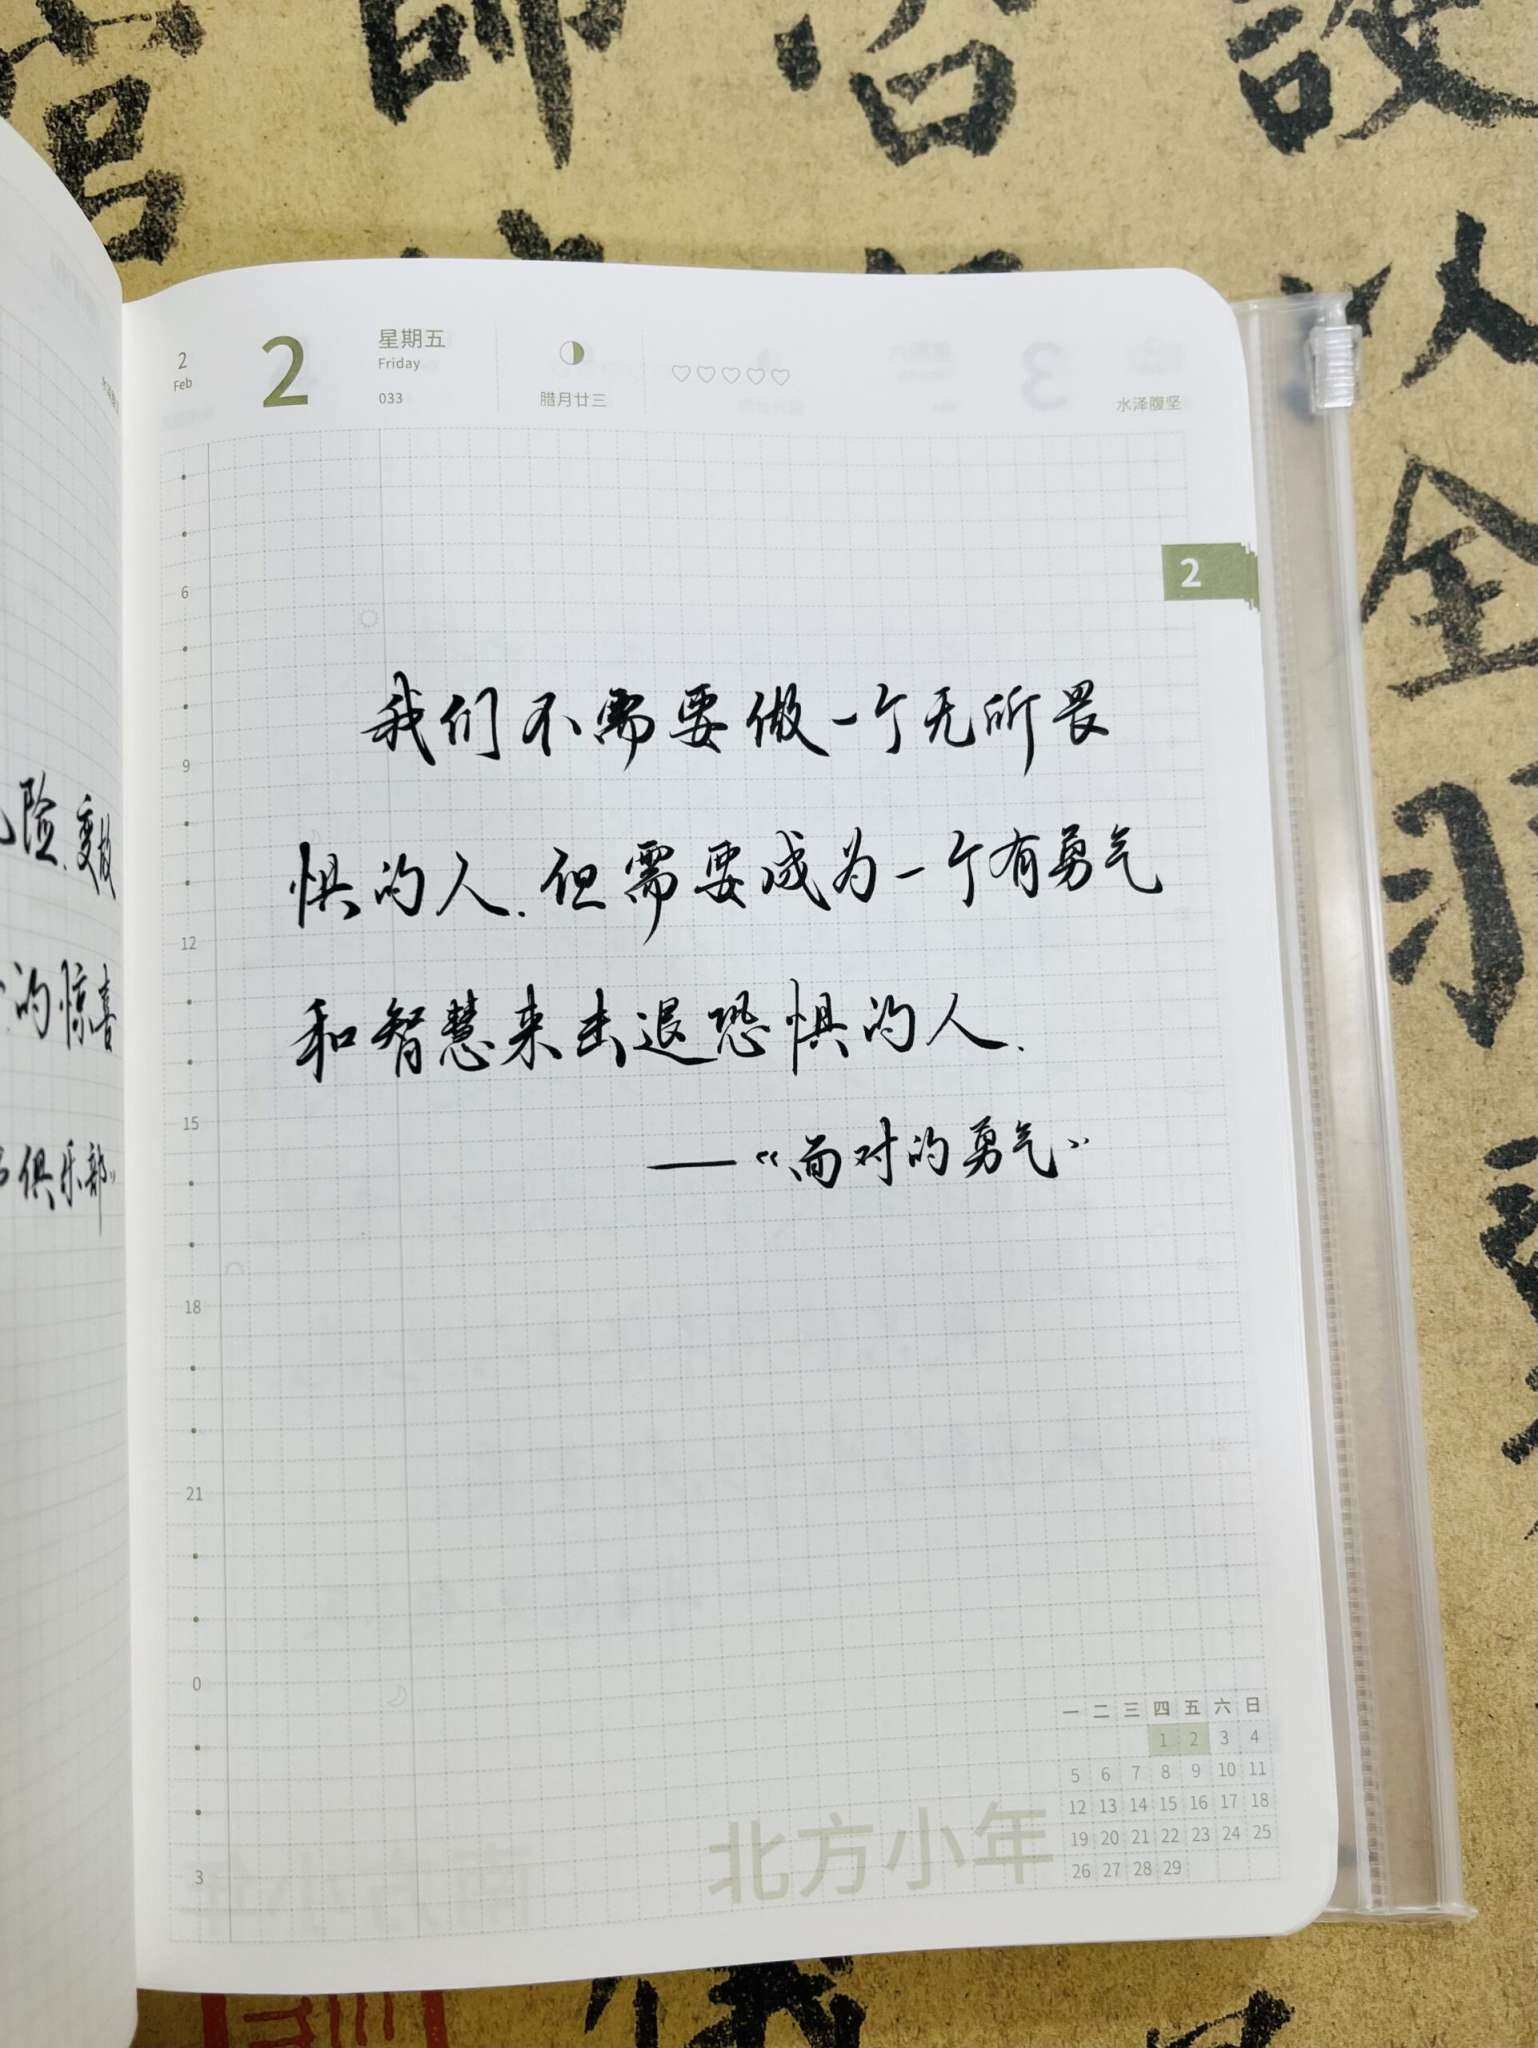 营 帅 召 设
以
全
2
Feb
2
星期五
Friday
033
腊月廿三
水泽腹坚
2
6
9
12
15
18
21
0
3
我们不需要做一个无所畏
惧的人.但需要成为一个有勇气
和智慧来击退恐惧的人.
——《面对的勇气》
险.变故
的惊喜
俱乐部》
北方小年
一 二 三 四 五 六 日
1 2 3 4
5 6 7 8 9 10 11
12 13 14 15 16 17 18
19 20 21 22 23 24 25
26 27 28 29